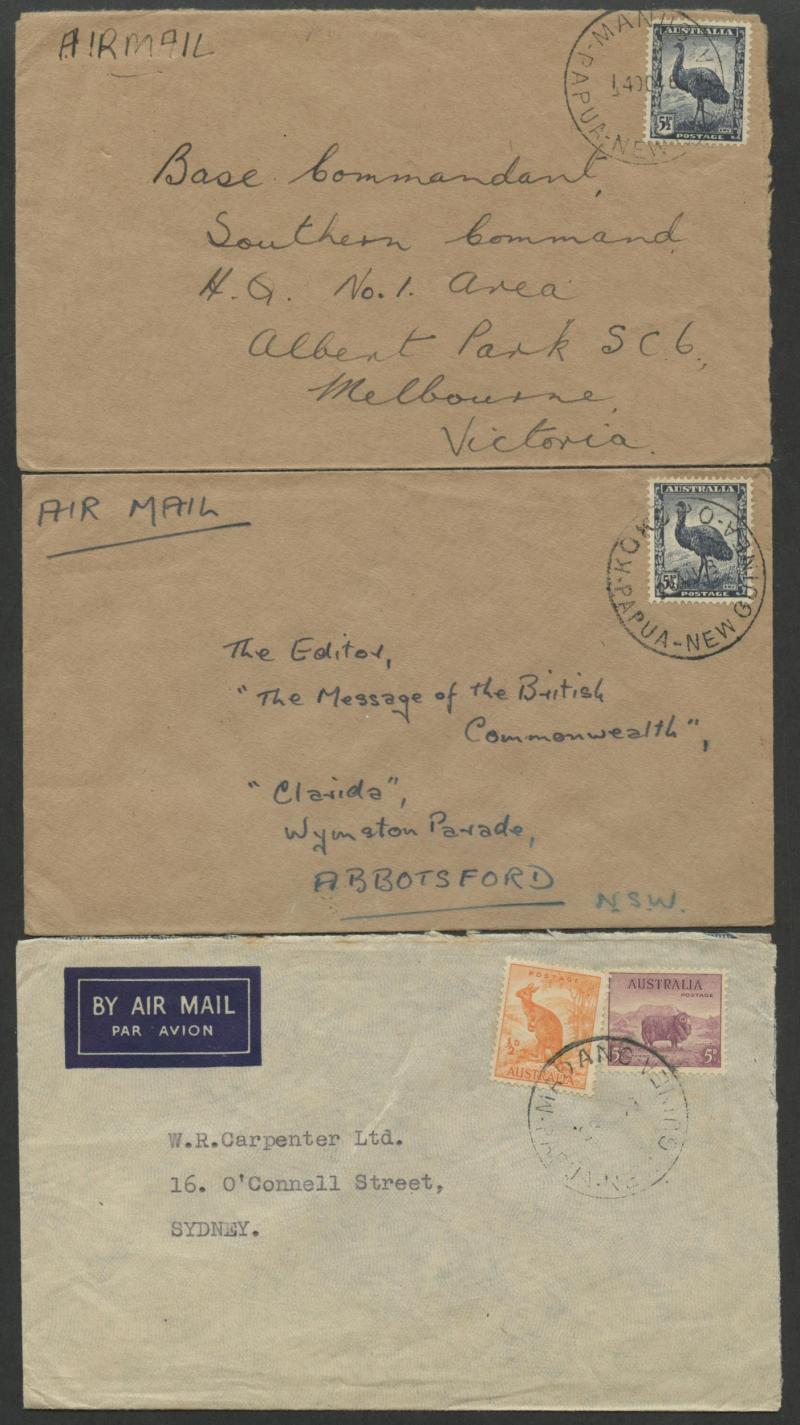 AIRMAIL
AUSTRALIA
5½D
POSTAGE
PAPUA-NEW
Base Commandant,
Southern Command
H.Q. No.1. Area
Albert Park SC6,
Melbourne,
Victoria.
AIR MAIL
AUSTRALIA
5½D
POSTAGE
KOKOPO
PAPUA-NEW GUINEA
The Editor,
"The Message of the British
Commonwealth",
"Clarida",
Wymston Parade,
ABBOTSFORD
N.S.W.
BY AIR MAIL
PAR AVION
POSTAGE
½D
AUSTRALIA
AUSTRALIA
POSTAGE
5D
MADANG
W.R.Carpenter Ltd.
16. O'Connell Street,
SYDNEY.